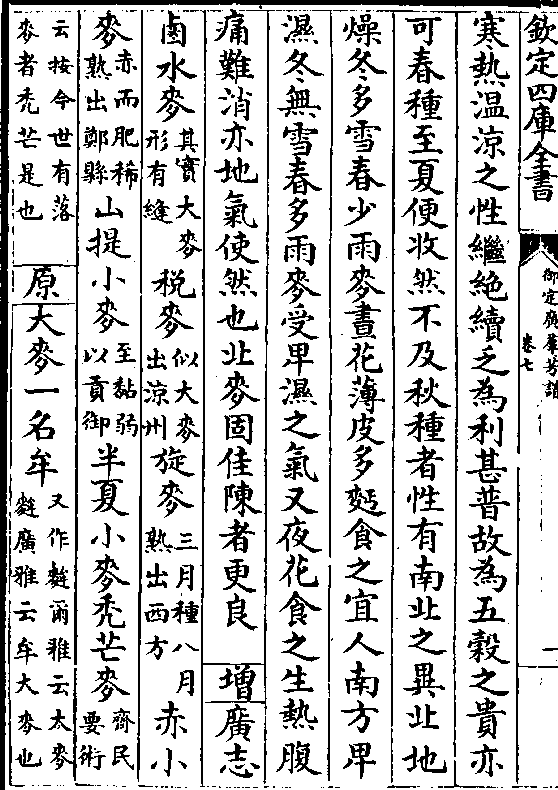 欽定四庫全書
御定廣羣芳譜
卷七
寒熱温涼之性繼絶續乏為利甚普故為五穀之貴亦
可春種至夏便收然不及秋種者性有南北之異北地
燥冬多雪春少雨麥晝花薄皮多麪食之宜人南方卑
濕冬無雪春多雨麥受卑濕之氣又夜花食之生熱腹
痛難消亦地氣使然也北麥固佳陳者更良 增 廣志
鹵水麥其實大麥形有縫 税麥似大麥出涼州 旋麥三月種八月熟出西方 赤小
麥赤而肥稀熟出鄭縣 山提小麥至黏弱以貢御 半夏小麥秃芒麥齊民要術
云按今世有落麥者秃芒是也 原 大麥一名牟又作麰爾雅云大麥麰廣雅云牟大麥也